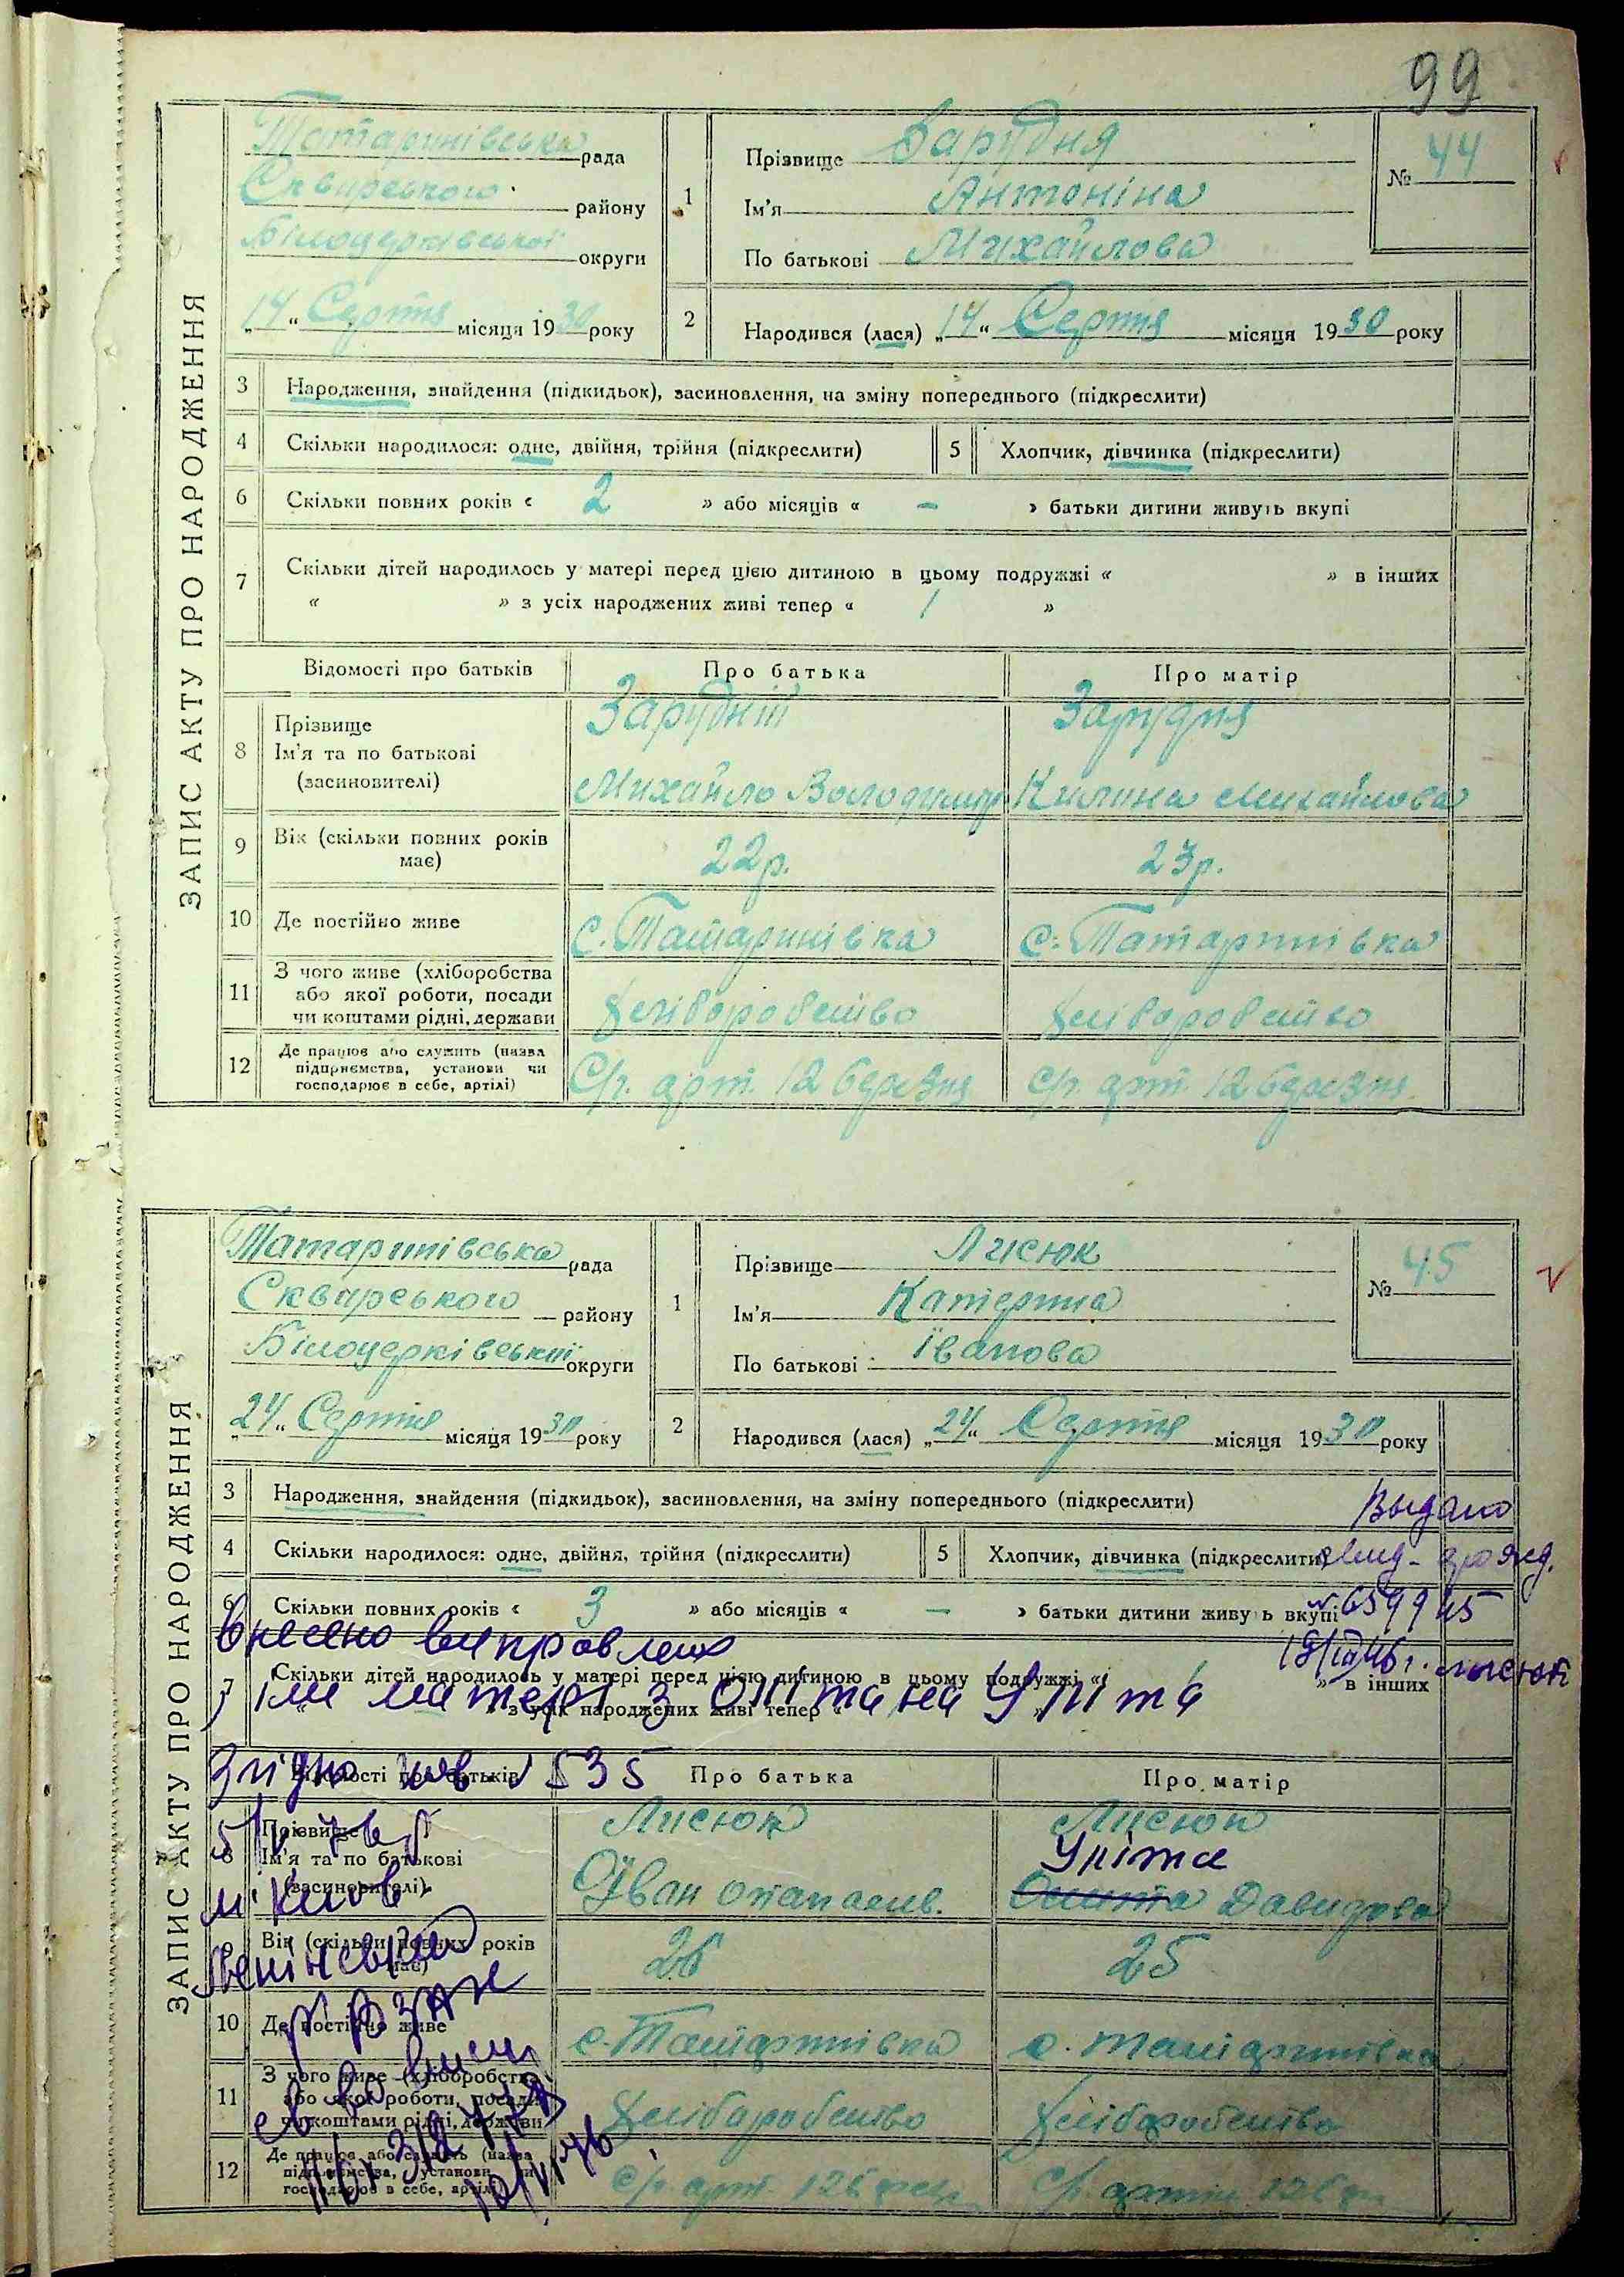 99
ЗАПИС АКТУ ПРО НАРОДЖЕННЯ
Татаринівська рада
Сквирського району
Білоцерківської округи
„14“ Серпня місяця 1930 року
1
Прізвище Зарудня
Ім'я Антоніна
По батькові Михайлова
№ 44
2
Народився (лася) „14“ Серпня місяця 1930 року
3 Народження, знайдення (підкидьок), засиновлення, на зміну попереднього (підкреслити)
4 Скільки народилося: одне, двійня, трійня (підкреслити) 5 Хлопчик, дівчинка (підкреслити)
6 Скільки повних років « 2 » або місяців « – » батьки дитини живуть вкупі
7 Скільки дітей народилось у матері перед цією дитиною в цьому подружжі « » в інших
« » з усіх народжених живі тепер « 1 »
Відомості про батьків Про батька Про матір
8 Прізвище Зарудній Зарудня
Ім'я та по батькові
(засиновителі) Михайло Володимир Килина Михайлова
9 Вік (скільки повних років має) 22р. 23р.
10 Де постійно живе с. Татаринівка с. Татаринівка
11 З чого живе (хліборобства
або якої роботи, посади
чи коштами рідні, держави хліборобство хліборобство
12 Де працює або служить (назва
підприємства, установи чи
господарює в себе, артілі) С/г. арт. 12 березня с/г. арт. 12 березня
ЗАПИС АКТУ ПРО НАРОДЖЕННЯ
Татаринівська рада
Сквирського району
Білоцерківської округи
„24“ Серпня місяця 1930 року
1
Прізвище Лисюк
Ім'я Катерина
По батькові Іванова
№ 45
2
Народився (лася) „24“ Серпня місяця 1930 року
3 Народження, знайдення (підкидьок), засиновлення, на зміну попереднього (підкреслити)
Выдано
4 Скільки народилося: одне, двійня, трійня (підкреслити) 5 Хлопчик, дівчинка (підкреслити)
6 Скільки повних років « 3 » або місяців « – » батьки дитини живуть вкупі
Внесено виправлен
7 Скільки дітей народилось у матері перед цією дитиною в цьому подружжі « » в інших
« » з усіх народжених живі тепер « »
ім матері з Оніта на Уніта
Згідно № 535
Відомості про батьків Про батька Про матір
8 Прізвище Лисюк Лисюк
Уніта
Ім'я та по батькові
(засиновителі) Іван Опанасів. Онита Давидова
м. Київ
9 Вік (скільки повних років має) 26 25
10 Де постійно живе с. Татаринівка с. Татаринівка
11 З чого живе (хліборобства
або якої роботи, посади
чи коштами рідні, держави хліборобство хліборобство
12 Де працює або служить (назва
підприємства, установи чи
господарює в себе, артілі) с/г. арт. 12 с/г. 12